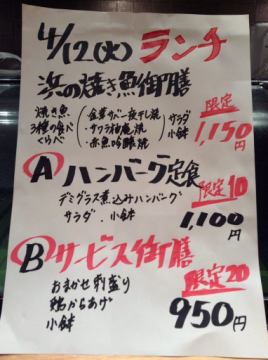 4/12(火) ランチ
浜の焼き魚御膳
焼き魚
3種の食べ
くらべ
金華サバ一夜干し焼
・サワラ柚庵焼
・赤魚吟醸焼
サラダ
小鉢
限定
1,150円
A ハンバーグ定食
デミグラス煮込みハンバーグ
サラダ・小鉢
限定10
1,100円
B サービス御膳
おまかせ刺盛り
鶏からあげ
小鉢
限定20
950円